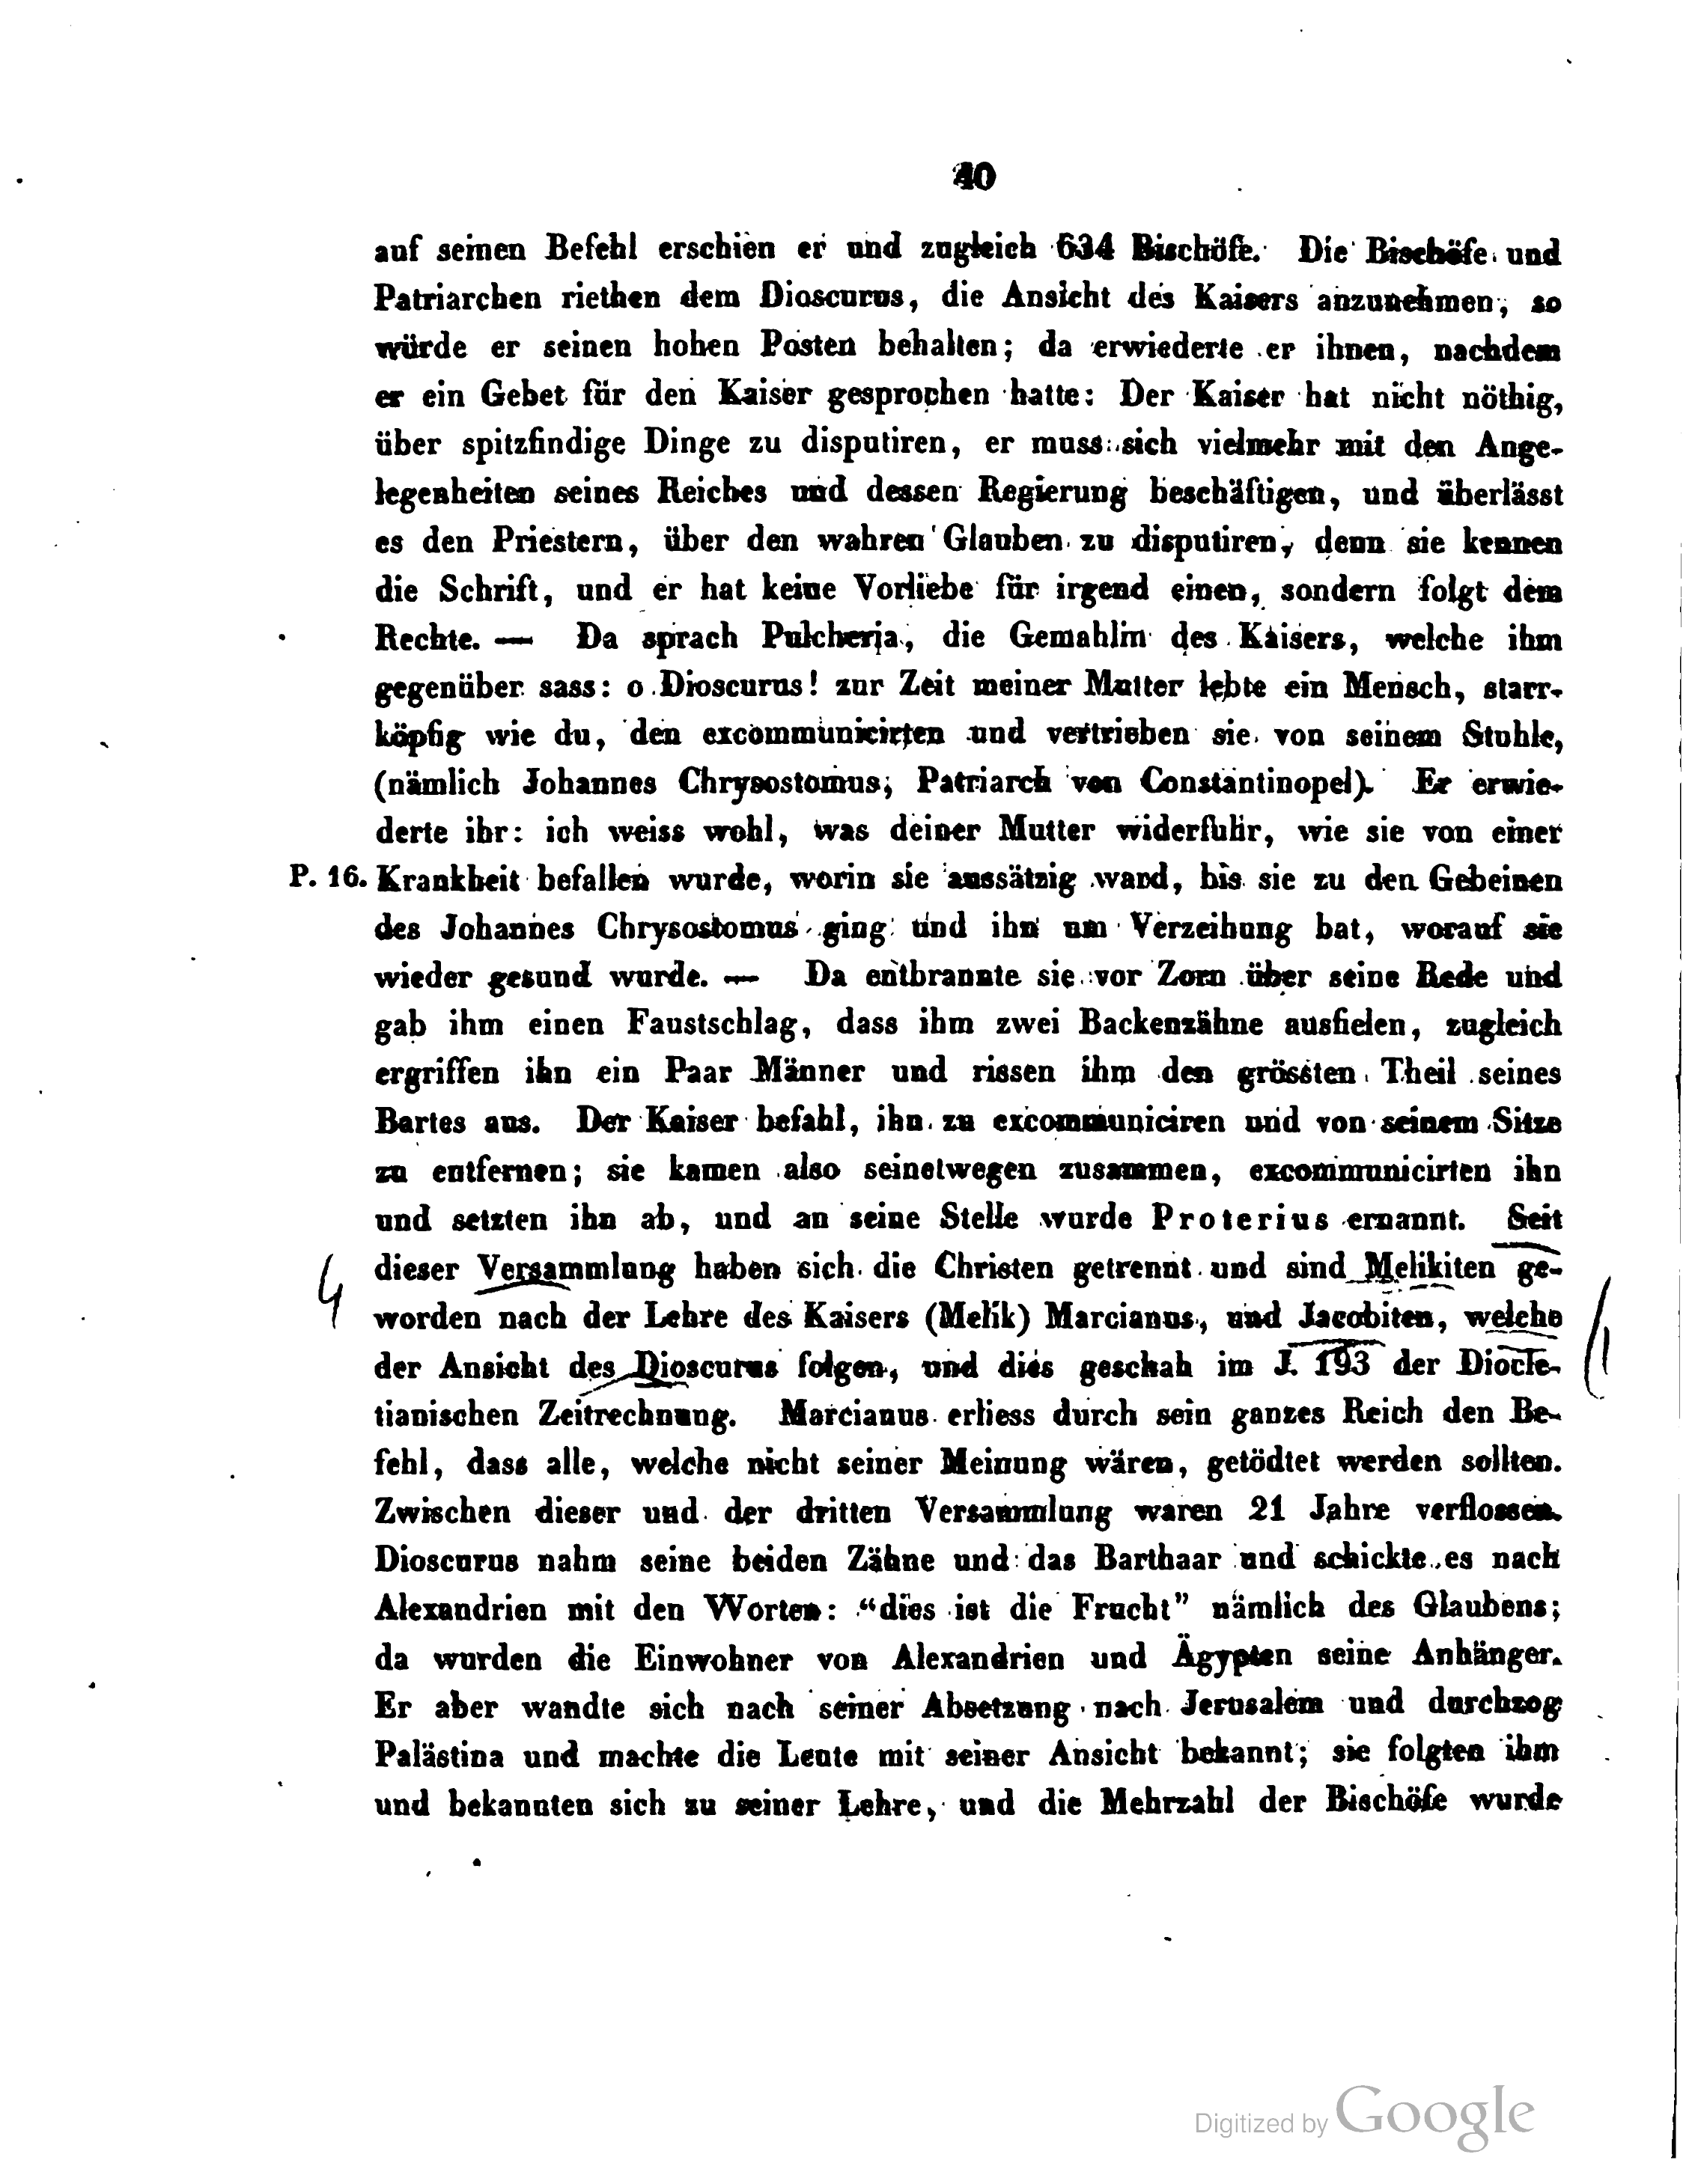 40
auf seinen Befehl erschien er und zugleich 634 Bischöfe. Die Bischöfe und
Patriarchen riethen dem Dioscurus, die Ansicht des Kaisers anzunehmen, so
würde er seinen hohen Posten behalten; da erwiederte er ihnen, nachdem
er ein Gebet für den Kaiser gesprochen hatte: Der Kaiser hat nicht nöthig,
über spitzfindige Dinge zu disputiren, er muss sich vielmehr mit den Ange-
legenheiten seines Reiches und dessen Regierung beschäftigen, und überlässt
es den Priestern, über den wahren Glauben zu disputiren, denn sie kennen
die Schrift, und er hat keine Vorliebe für irgend einen, sondern folgt dem
Rechte. — Da sprach Pulcheria, die Gemahlin des Kaisers, welche ihm
gegenüber sass: o Dioscurus! zur Zeit meiner Mutter lebte ein Mensch, starr-
köpfig wie du, den excommunicirten und vertrieben sie von seinem Stuhle,
(nämlich Johannes Chrysostomus, Patriarch von Constantinopel). Er erwie-
derte ihr: ich weiss wohl, was deiner Mutter widerfuhr, wie sie von einer
P. 16. Krankheit befallen wurde, worin sie aussätzig ward, bis sie zu den Gebeinen
des Johannes Chrysostomus ging und ihn um Verzeihung bat, worauf sie
wieder gesund wurde. — Da entbrannte sie vor Zorn über seine Rede und
gab ihm einen Faustschlag, dass ihm zwei Backenzähne ausfielen, zugleich
ergriffen ihn ein Paar Männer und rissen ihm den grössten Theil seines
Bartes aus. Der Kaiser befahl, ihn zu excommuniciren und von seinem Sitze
zu entfernen; sie kamen also seinetwegen zusammen, excommunicirten ihn
und setzten ihn ab, und an seine Stelle wurde Proterius ernannt. Seit
4 dieser Versammlung haben sich die Christen getrennt und sind Melikiten ge-
worden nach der Lehre des Kaisers (Melik) Marcianus, und Jacobiten, welche
der Ansicht des Dioscurus folgen, und dies geschah im J. 193 der Diocle-
tianischen Zeitrechnung. Marcianus erliess durch sein ganzes Reich den Be-
fehl, dass alle, welche nicht seiner Meinung wären, getödtet werden sollten.
Zwischen dieser und der dritten Versammlung waren 21 Jahre verflossen.
Dioscurus nahm seine beiden Zähne und das Barthaar und schickte es nach
Alexandrien mit den Worten: “dies ist die Frucht” nämlich des Glaubens;
da wurden die Einwohner von Alexandrien und Ägypten seine Anhänger.
Er aber wandte sich nach seiner Absetzung nach Jerusalem und durchzog
Palästina und machte die Leute mit seiner Ansicht bekannt; sie folgten ihm
und bekannten sich zu seiner Lehre, und die Mehrzahl der Bischöfe wurde
Digitized by Google